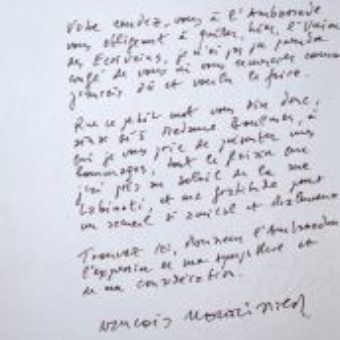 Votre rendez-vous à l'Ambassade
vous obligeant à quitter, hier, l'Union
des Ecrivains, je n'ai pas pu prendre
congé de vous ni vous remercier comme
j'aurais dû et voulu le faire.
Que ce petit mot vous dise donc,
ainsi qu'à Madame, à
qui je vous prie de présenter mes
hommages, tout le plaisir que
j'ai pris au soleil de la rue
et ma gratitude pour
un accueil si amical et
Trouvez ici, Monsieur l'Ambassadeur
l'expression de ma sympathie et
de ma considération.